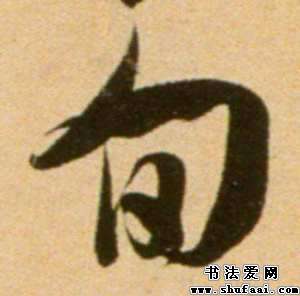 旬
书法爱网
www.shufaai.com